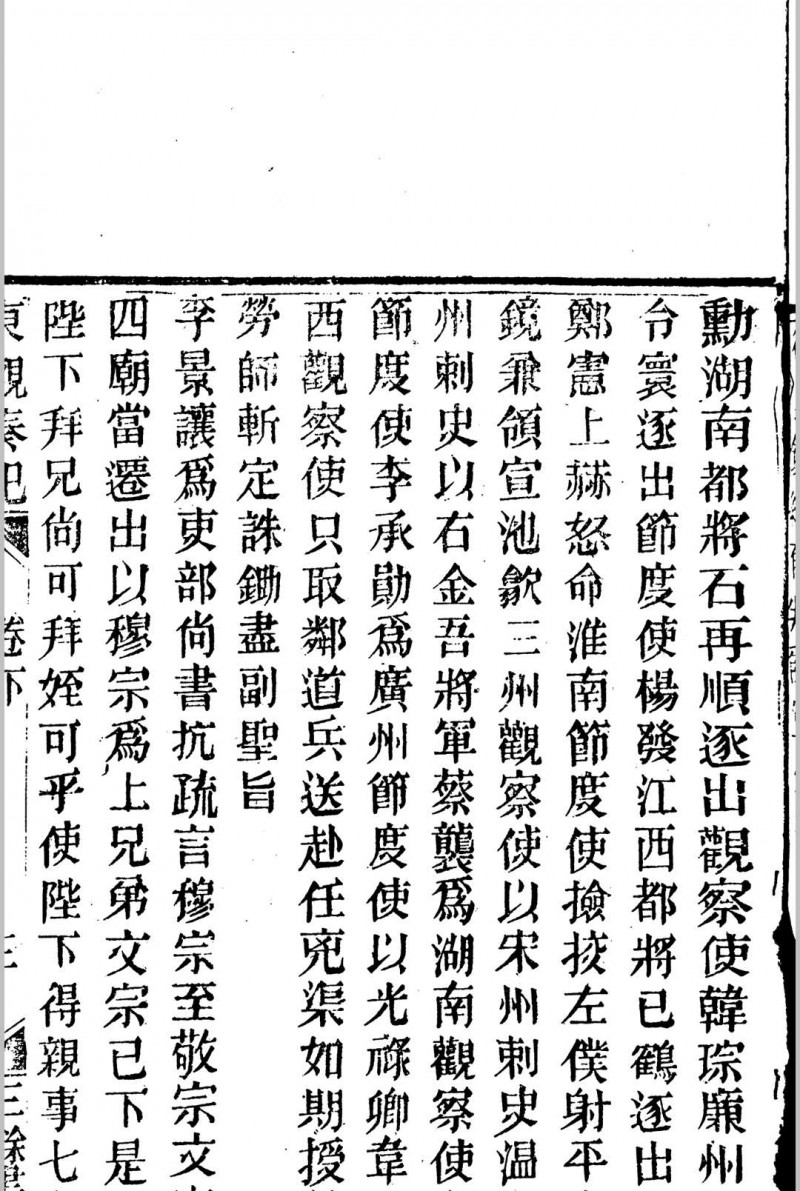 勳湖南都將石再順逐出觀察使韓琮廉州
令寰逐出節度使楊發江西都將已鶴逐出
鄭憲上赫怒命淮南節度使撿挍左僕射平
鏡兼領宣池歙三州觀察使以宋州刺史溫
州刺史以右金吾將軍蔡襲爲湖南觀察使
節度使李承勛爲廣州節度使以光祿卿韋
西觀察使只取鄰道兵送赴任兇渠如期授
勞師斬定誅鋤盡副聖旨
李景讓爲吏部尚書抗疏言穆宗至敬宗文
四廟當遷出以穆宗爲上兄弟文宗已下是
陛下拜兄尚可拜姪可乎使陛下得親事七
東觀奏記
卷下
三